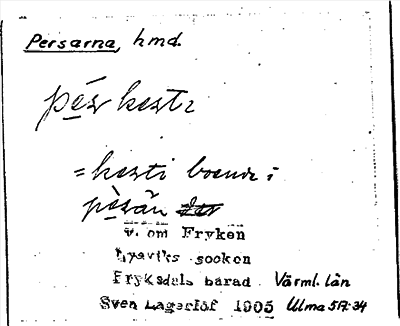 Persarna, hmd.
pe̱s kest
= kesti boende i
v. om Fryken
Lysviks socken
Fryksdals härad Värml. län
Sven Lagerlöf 1905 Ulma 57:34